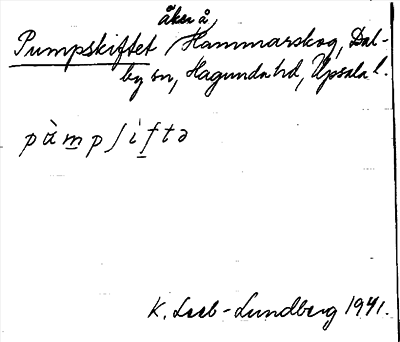 åker å
Pumpskiftet / Hammarskog, Dal-
by sn, Hagunda hd, Upsala l.
pùmpʃìftə
K. Leeb-Lundberg 1941.